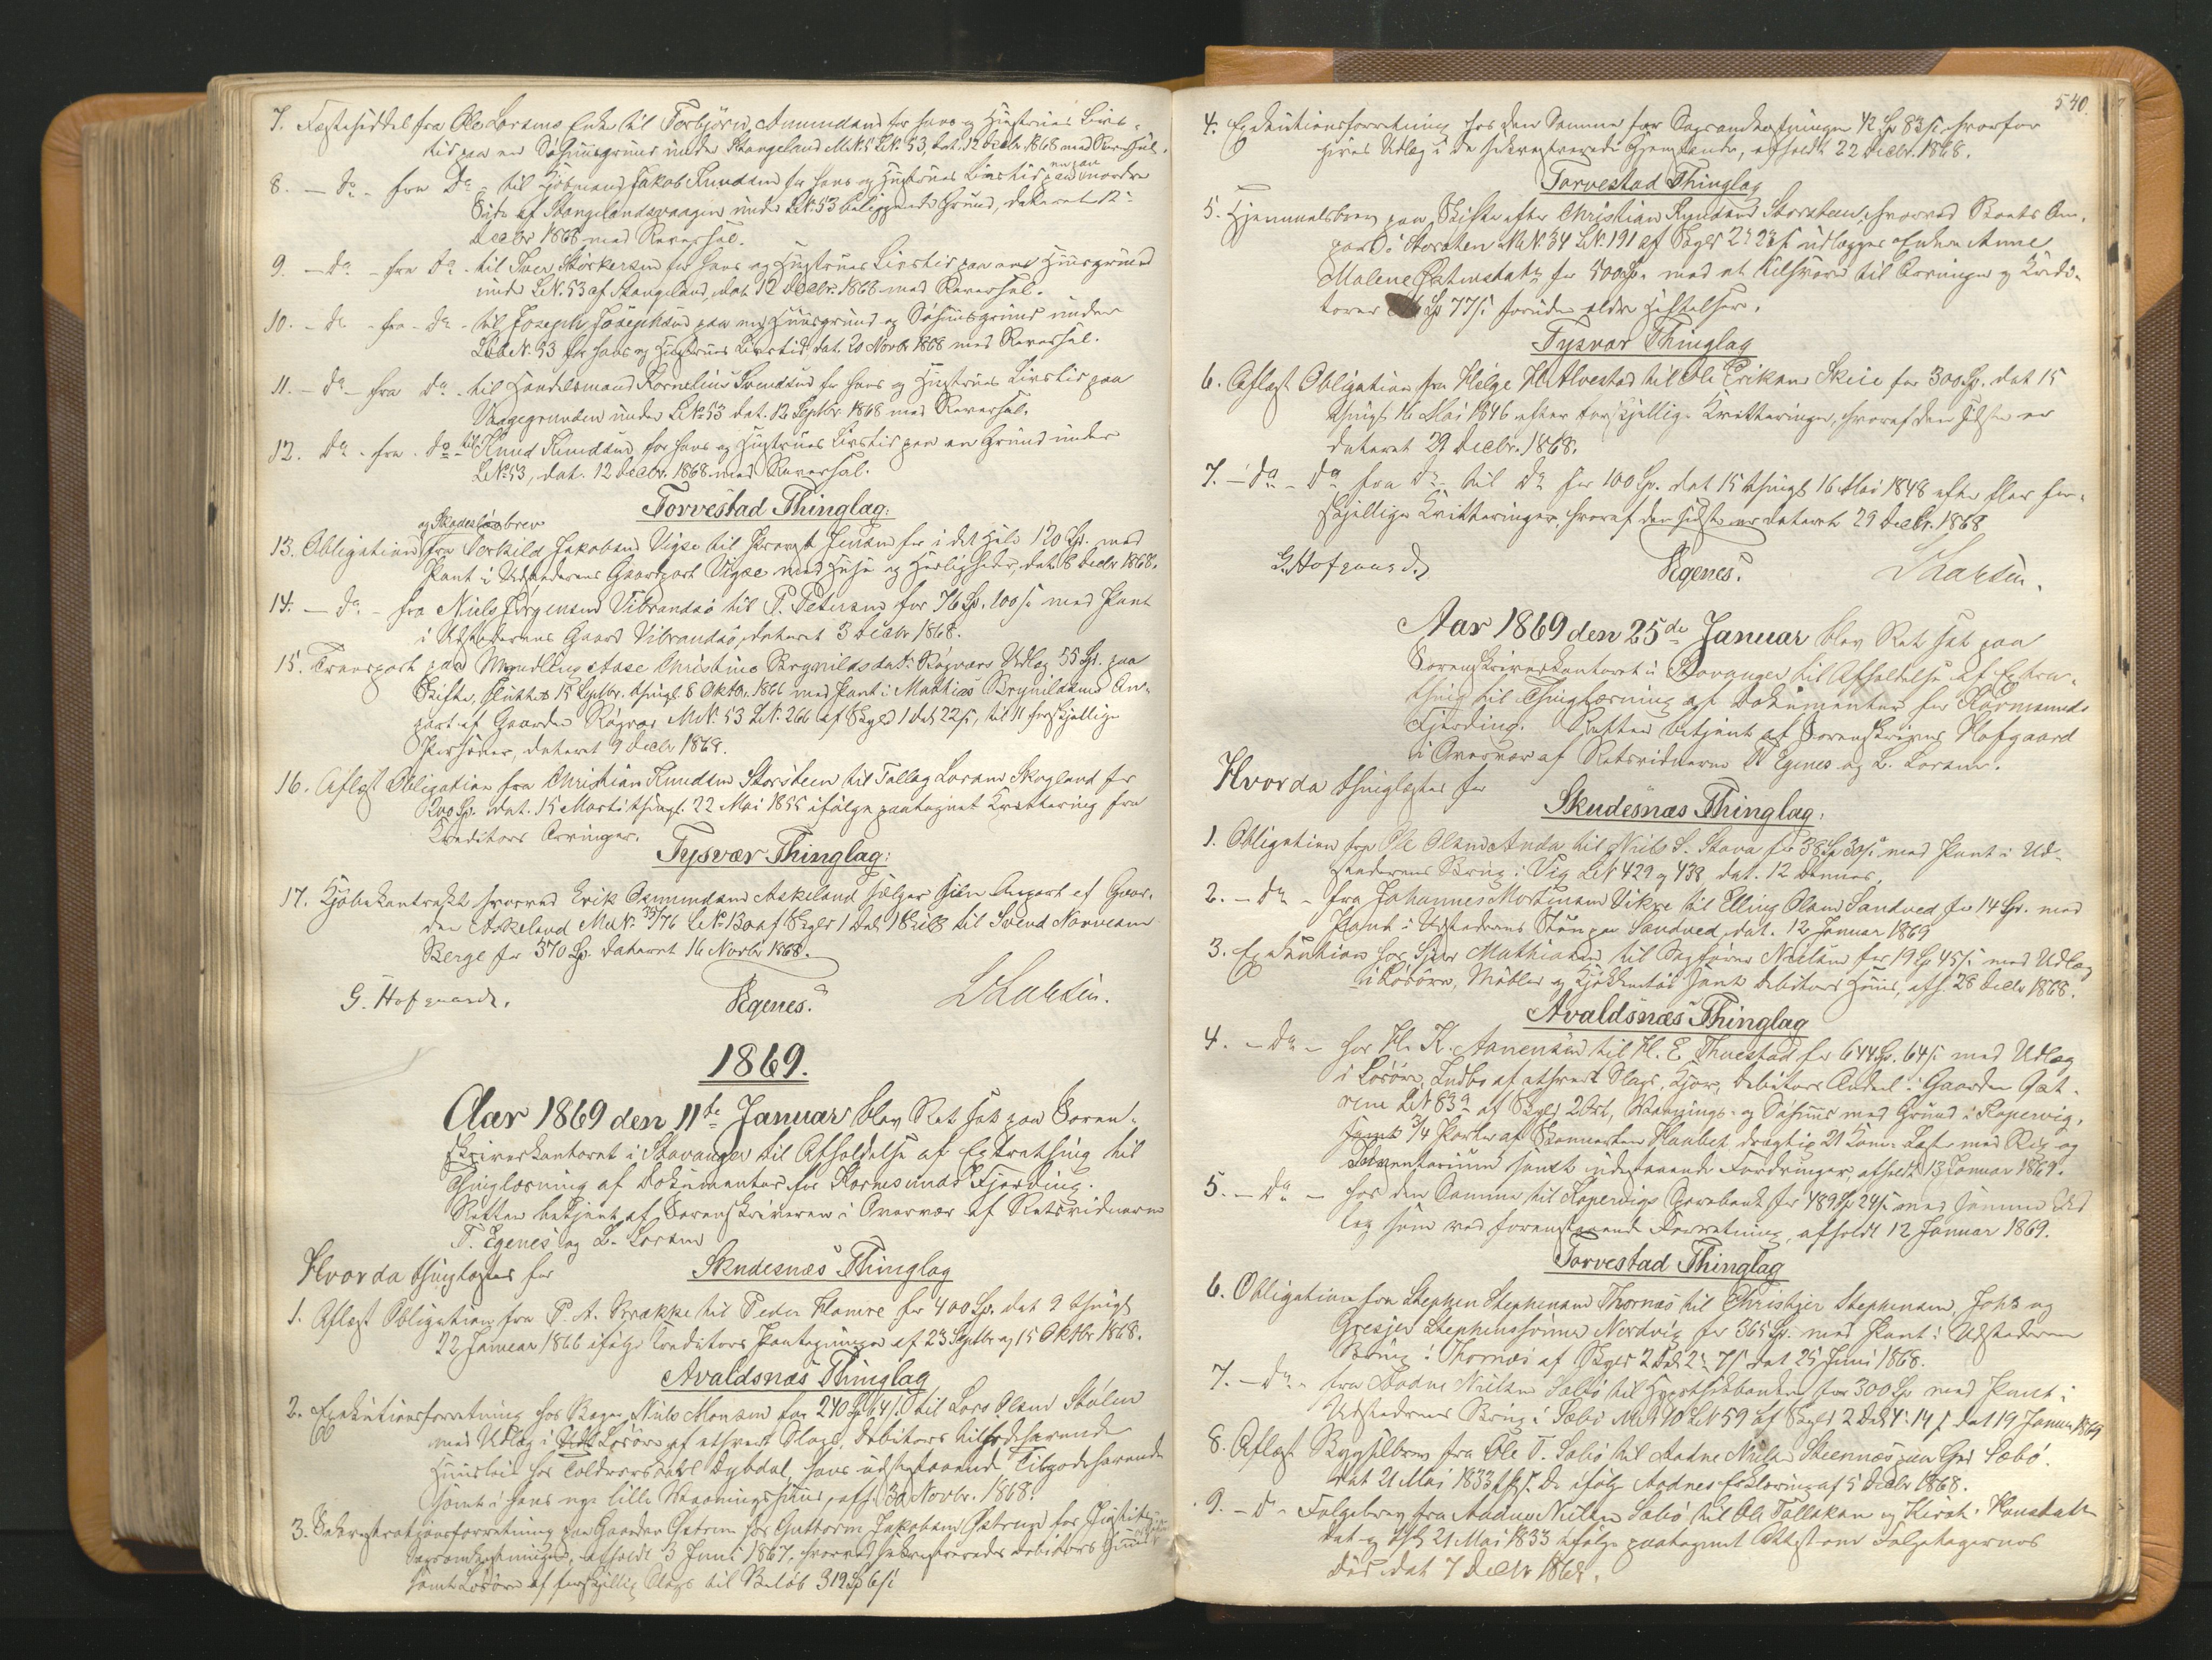 7. Fæstesæddel fra Ole Larsens Enke til Torbjörn Amundsen for hans og Hustrues Livs-
tid paa en Söhuusgrund under Stangeland M.N. 5 L.N. 53, dat. 12 Decbr 1868 med Reversal.
8. — Do - fra Do - til Kjöbmand Jakob Knudsen for hans og Hustrues Livstid paa nordre
Side af Stangelandsvaagen under L.N. 53 beliggende Grund, dateret 12
Decbr 1868 med Reversal.
9. — Do - fra Do - til Iver Störkersen for hans og Hustrues Livstid paa en Huusgrund
under L.N. 53 af Stangeland, dat. 12 Decbr. 1868 med Reversal.
10. - Do - fra - Do - til Joseph Josephsen paa en Huusgrund og Söhuusgrund under
Löbe N. 53 for hans og Hustrues Livstid dat. 20 Novbr 1868 med Reversal.
11. - Do - fra Do - til Handelsmand Kornelius Svendsen for hans og Hustrues Livstid paa
under L.N. 53 dat. 12 Septbr. 1868 med Reversal.
12. Do - fra - Do - til Knud Knudsen for hans og Hustrues Livstid paa en Grund under
L.N. 53, dat. 12 Decbr. 1868 med Reversal.
Torvestad Thinglag:
og Skadeslösbrev
13. Obligation fra Torkild Jakobsen Vigse til Jensen for i det Hele 120 Sp. med
Pant i Udstederens Gaardpart Vigse med Huse og Herligheder, dat. 8 Decbr 1868.
14. — Do - fra Niels Jörgensen Vibrandsö til P. Petersen for 76 Sp. 100 s. med Pant
i Udstederens Gaard Vibrandsö, dateret 3 Decbr 1868.
15. Transport paa Myndling Aase Christine Brynildsdatr. Rögvær Udlæg 55 Sp. paa
Skifte, sluttet 15 Septbr. thingl. 8 Oktbr. 1866 med Pant i Mathias Brynildsens An-
part af Gaarden Rögvær M.N. 53 L.N. 266 af Skyld 1 Dal. 22 s., til 11 forskjellige
Personer, dateret 9 Decbr 1868.
16. Aflæst Obligation fra Christian Knudsen Storsteen til Tallag Larsen Skogland for
200 Sp. dat. 15 Marts thingl. 22 Mai 1855 ifölge paategnet Kvittering fra
Kreditors Arvinger.
Tysvær Thinglag:
17. Kjöbekontrakt hvorved Erik Osmundsen Askeland sælger sin Anpart af Gaar-
den Askeland Mat.N. 35/76 L.N. 130 af Skyld 1 Dal. 18 s. til Svend
Berge for 370 Sp. dateret 16 Novbr 1868.
G. Hofgaard. TEgenes. L Larsen.
1869.
Aar 1869 den 11te Januar blev Ret sat paa Soren-
skriverkontoret i Stavanger til Afholdelse af Extrathing til
Thinglæsning af Dokumenter for Karmsunds Fjerding.
Retten betjent af Sorenskriveren i Overvær af Retsvidnerne
T. Egenes og L. Larsen
Hvorda thinglæstes for
Skudesnæs Thinglag
1. Aflæst Obligation fra P. A. Brække til Peder Hamre for 400 Sp. dat 9 thingl
22 Januar 1866 ifölge Creditors Paategninger af 23 Septbr og 15 Oktbr 1868.
Avaldsnæs Thinglag
2. Exekutionsforretning hos Bager Niels Monsen for 240 Sp. 64 s. til Lars Olsen Stölen
med Udlæg i Lösöre af ethvert Slags, Debitors tilgodehavende
Huusleie hos Dybdal, hans udestaaende Tilgodehavende
samt i hans nye lille Vaaningshuus, afh. 30 Novbr. 1868.
3. Sekvestrationsforretning paa Gaarden Gatrem hos Guttorm Jakobsen for
Sagsomkostninger, afholdt 3 Juni 1867, hvorved sekvestreredes Debitors
samt Lösöre af forskjellig Slags til Belöb 319 Sp. 6 s.
540.
4. Exekutionsforretning hos den Samme for Sagsomkostninger 42 Sp 83 s. hvorfor
gives Udlæg i de sekvestrerede Gjenstande, afholdt 22 Decbr. 1868.
Torvestad Thinglag
5. Hjemmelsbrev paa Skifte efter Christian Knudsen Storsteen, hvorved Boets An-
part i Storsteen M.N. 34 L.N. 191 af Skyld udlægges Enken Anne
Malene for 500 Sp. med at tilsvare til Arvinger og Kredi-
torer Sp 77 s. foruden ældre Heftelser.
Tysvær Thinglag
6. Aflæst Obligation fra Helge H. Alvestad til Ole Eriksen Skeie for 300 Sp. dat 15
thingl. 16 Mai 1846 efter forskjellige Kvitteringer, hvoraf den sidste er
dateret 29 Decbr. 1868.
7. — Do - Do fra Do - til Do for 100 Sp. dat 15 thingl 16 Mai 1848 efter flere for-
skjellige Kvitteringer, hvoraf den sidste er dateret 29 Decbr. 1868
G. Hofgaard. TEgenes. L Larsen.
Aar 1869 den 25de Januar blev Ret sat paa
Sorenskriverkontoret i Stavanger til Afholdelse af Extra-
thing til Thinglæsning af Dokumenter for Karmsunds
Fjerding. Retten betjent af Sorenskriver Hofgaard
i Overvær af Retsvidnerne T. Egenes og L. Larsen.
Hvorda thinglæstes for
Skudesnæs Thinglag.
1. Obligation fra Ole Olsen Anda til Niels S. Stava for 38 Sp 30 s. med Pant i Ud-
stederens Brug i Vig L.N. 429 og 438 dat. 12 Dennes.
2. — Do - fra Johannes Mortensen Vikre til Elling Olsen Sandved for 14 Sp. med
Pant i Udstederens Sandved, dat. 12 Januar 1869
3. Exekution hos Sjur Mathiasen til Sagförer Nielsen for 19 Sp 45 s. med Udlæg
i Lösöre, Möbler og Kjökkentöi samt Debitors Huus, afh. 28 Decbr 1868.
Avaldsnæs Thinglag
4. — Do — hos H. K. Aanensen til H. E. Thuestad for 644 Sp. 64 s. med Udlæg
i Lösöre, Indbo af ethvert Slags, Kjör, Debitors Andel i Gaarden Gat-
rem L.N. 83a af Skyld 2 Ort, Vaanings- og Söhuus med Grund i Kopervig,
samt 3/4 Parter af Skonnerten Haabet drægtig 21 Com. Læster med Rig og
Inventarium samt udestaaende Fordringer, afholdt 13 Januar 1869.
5. — Do — hos den Samme til Kopervigs Sparebank for 489 Sp 24 s. med samme Ud
læg som ved foranstaaende Forretning, afholdt 12 Januar 1869.
Torvestad Thinglag
6. Obligation fra Stephen Stephensen Thornæs til Christjer Stephensen, og
Gresjer Nordvig for 365 Sp. med Pant i Udstederens
Brug i Thornæs af Skyld 2 Dal. 2 Ort 7 s. dat 25 Juni 1868.
7. — Do - fra Aadne Nielsen Sæbö til Hypothekbanken for 300 Sp. med Pant i
Udstederens Brug i Sæbö M.N. 10 L.N. 59 af Skyld 2 Dal. 4 Ort 14 s. dat 19 Januar 1869
8. Aflæst Bygselbrev fra Ole T. Sæbö til Aadne Nielsen Steensnæs paa Grd Sæbö.
dat 21 Mai 1833 ifölge Aadnes Erklæring af 5 Decbr 1868.
9. — D - Folgebrev fra Aadne Nielsen Sæbö til Ole Tollaksen og
dat og thgl 21 Mai 1833 ifölge paategnet Attest om Folgetagernes
Död dat 7 Decbr 1868.